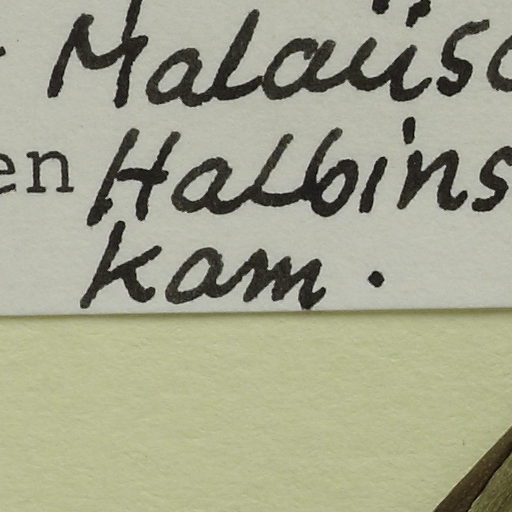 Malaiisc
en Halbins
kam.